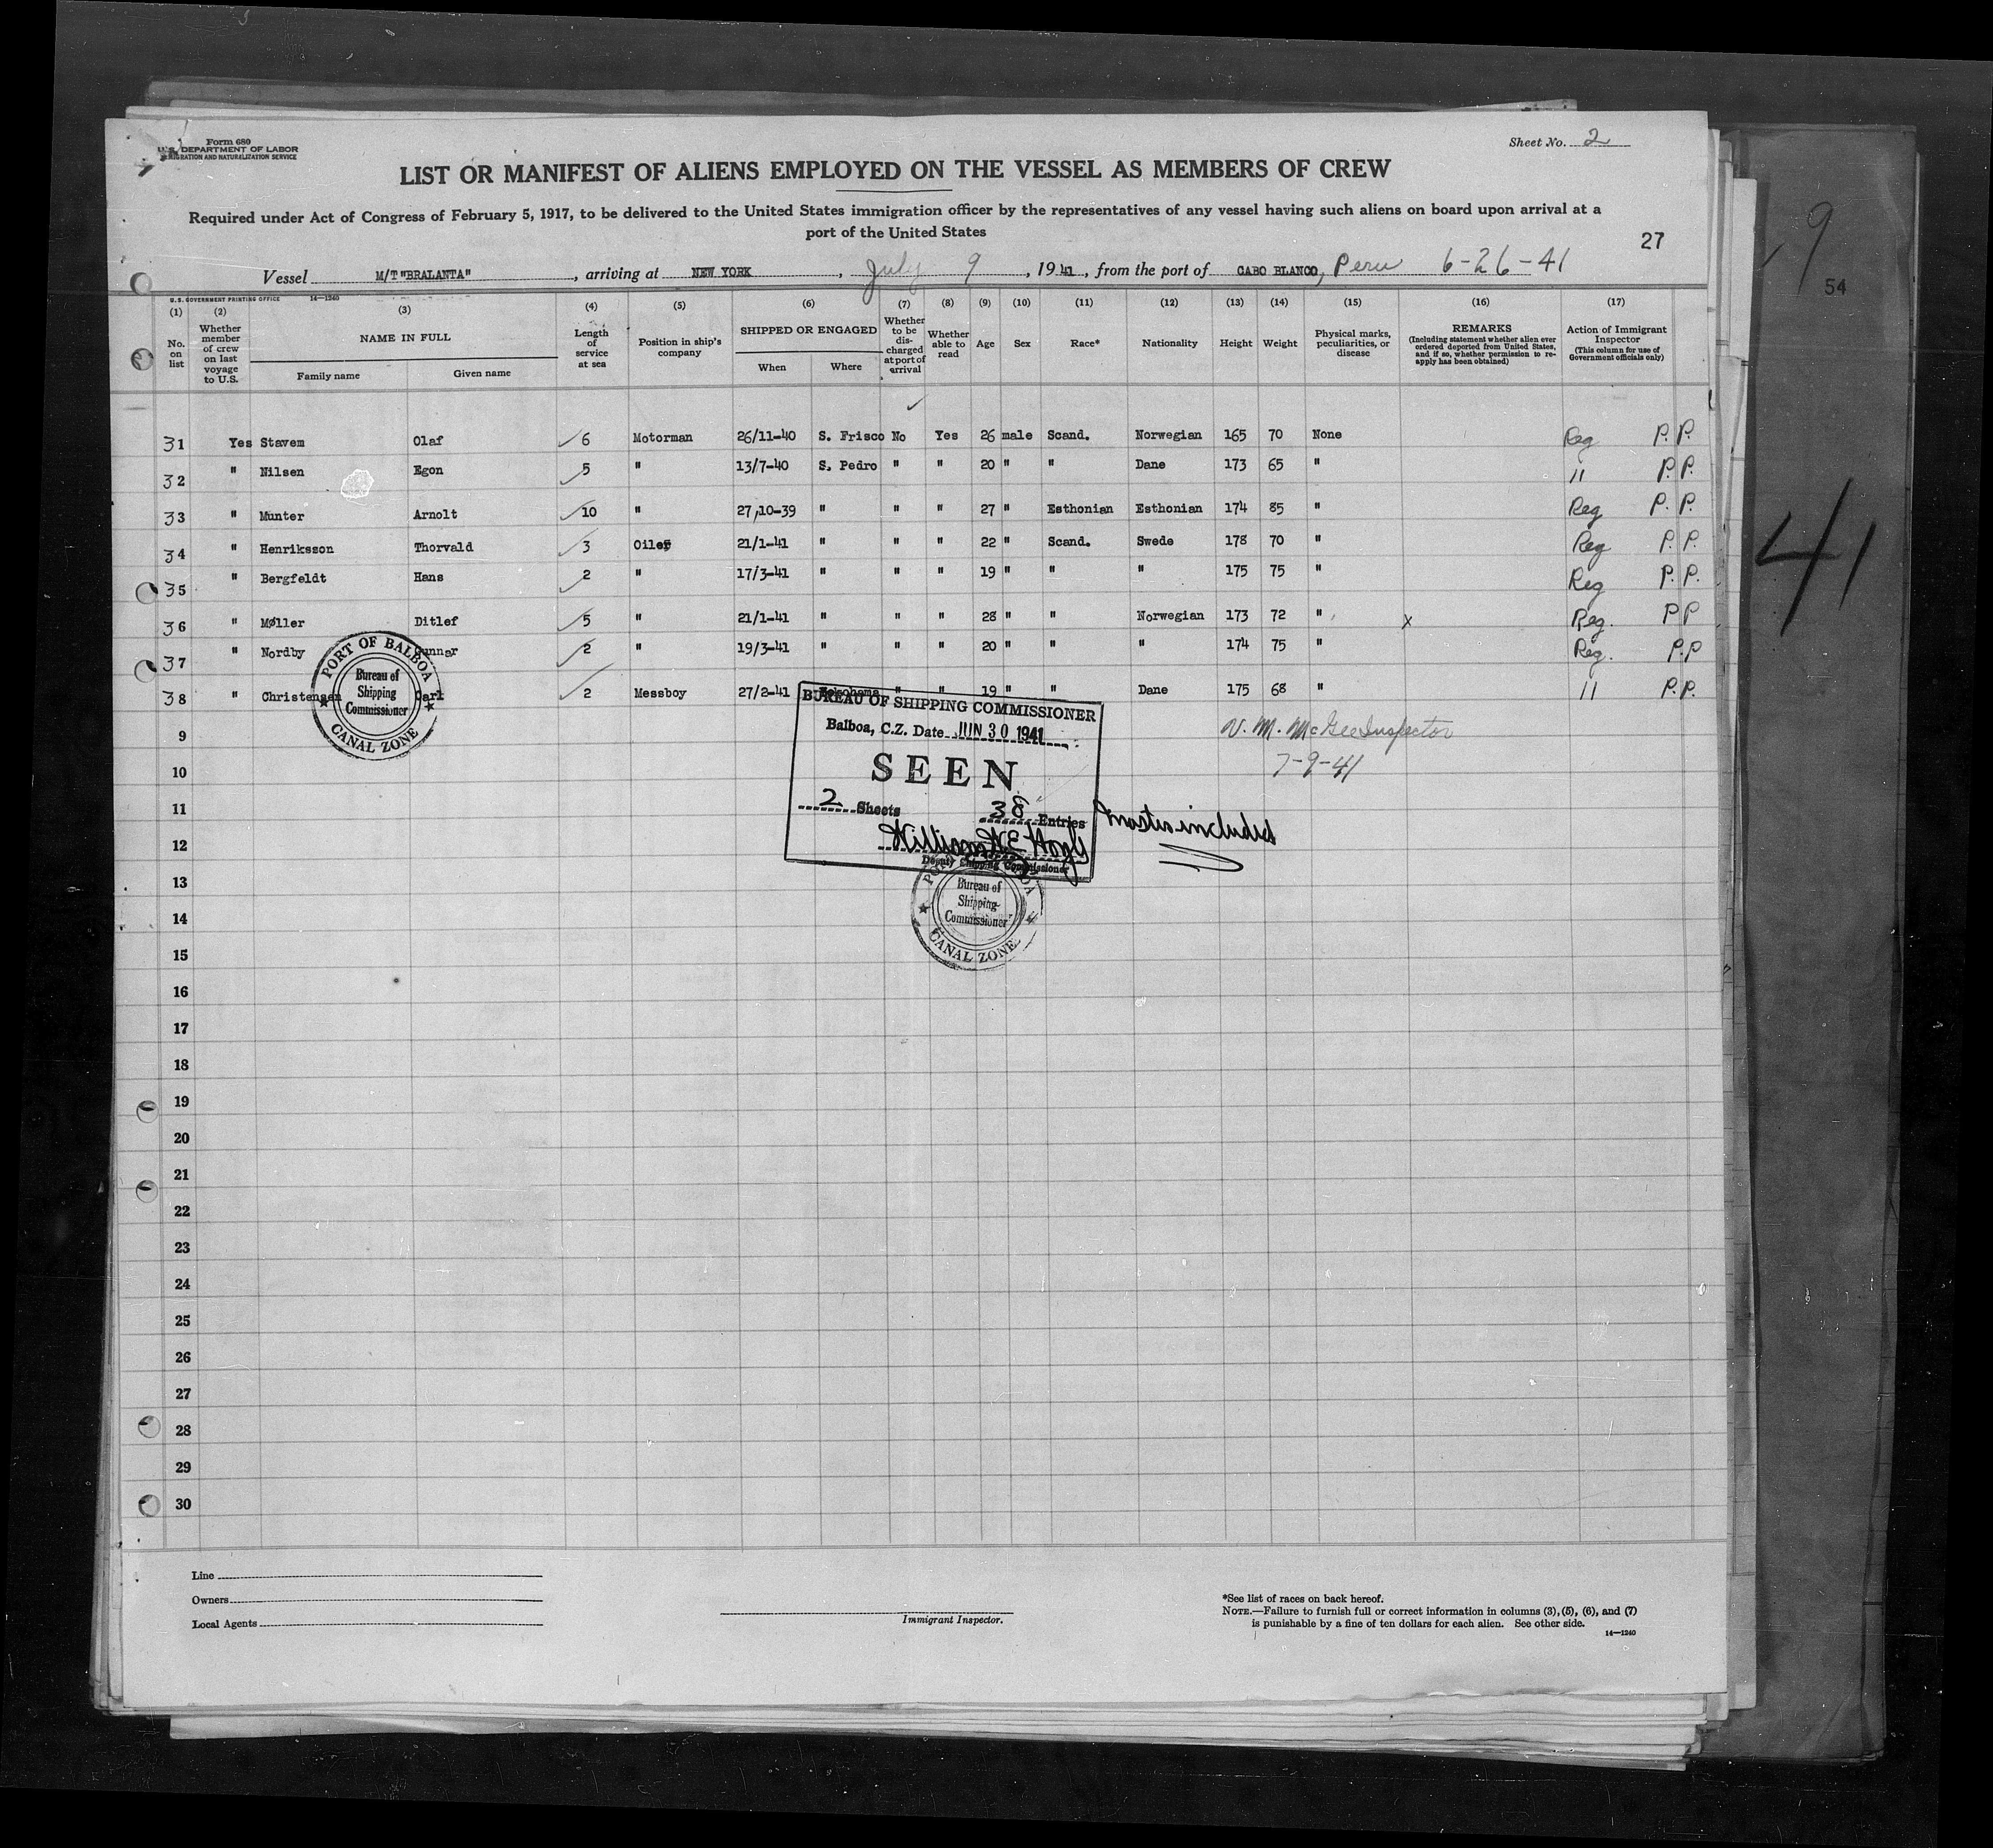 Form 680
U.S. DEPARTMENT OF LABOR
IMMIGRATION AND NATURALIZATION SERVICE
Sheet No. 2
LIST OR MANIFEST OF ALIENS EMPLOYED ON THE VESSEL AS MEMBERS OF CREW
Required under Act of Congress of February 5, 1917, to be delivered to the United States immigration officer by the representatives of any vessel having such aliens on board upon arrival at a
port of the United States
27
Vessel M/T "BRALANTA", arriving at NEW YORK, July 9, 1941, from the port of CABO BLANCO, Peru 6-26-41
U.S. GOVERNMENT PRINTING OFFICE 14—1240
(1) No. on list
(2) Whether member of crew on last voyage to U.S.
(3) NAME IN FULL
Family name Given name
(4) Length of service at sea
(5) Position in ship's company
(6) SHIPPED OR ENGAGED
When Where
(7) Whether to be discharged at port of arrival
(8) Whether able to read
(9) Age
(10) Sex
(11) Race*
(12) Nationality
(13) Height
(14) Weight
(15) Physical marks, peculiarities, or disease
(16) REMARKS
(Including statement whether alien ever ordered deported from United States, and if so, whether permission to reapply has been obtained)
(17) Action of Immigrant Inspector
(This column for use of Government officials only)
31 Yes Stavem Olaf 6 Motorman 26/11-40 S. Frisco No Yes 26 male Scand. Norwegian 165 70 None Reg P.P.
32 " Nilsen Egon 5 " 13/7-40 S. Pedro " " 20 " " Dane 173 65 " " P.P.
33 " Munter Arnolt 10 " 27,10-39 " " " 27 " Esthonian Esthonian 174 85 " Reg P.P.
34 " Henriksson Thorvald 3 Oiler 21/1-41 " " " 22 " Scand. Swede 178 70 " Reg P.P.
35 " Bergfeldt Hans 2 " 17/3-41 " " " 19 " " " 175 75 " Reg P.P.
36 " Møller Ditlef 5 " 21/1-41 " " " 28 " " Norwegian 173 72 " x Reg. PP
37 " Nordby Gunnar 2 " 19/3-41 " " " 20 " " " 174 75 " Reg. P.P
38 " Christensen Carl 2 Messboy 27/2-41 " " 19 " " Dane 175 68 " " P.P.
PORT OF BALBOA
Bureau of
Shipping
Commissioner
CANAL ZONE
BUREAU OF SHIPPING COMMISSIONER
Balboa, C.Z. Date JUN 30 1941
SEEN
2 Sheets 38 Entries
Master included
Deputy Shipping Commissioner
V. M. McGee Inspector
7-9-41
Bureau of
Shipping
Commissioner
CANAL ZONE
9
10
11
12
13
14
15
16
17
18
19
20
21
22
23
24
25
26
27
28
29
30
Line
Owners
Local Agents
Immigrant Inspector.
*See list of races on back hereof.
NOTE.—Failure to furnish full or correct information in columns (3), (5), (6), and (7)
is punishable by a fine of ten dollars for each alien. See other side.
14—1240
9
54
41